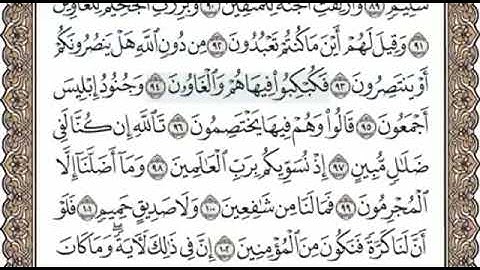 سَلِيمٍ ٨٩ وَأُزْلِفَتِ ٱلْجَنَّةُ لِلْمُتَّقِينَ ٩٠ وَبُرِّزَتِ ٱلْجَحِيمُ لِلْغَاوِينَ
٩١ وَقِيلَ لَهُمْ أَيْنَ مَا كُنتُمْ تَعْبُدُونَ ٩٢ مِن دُونِ ٱللَّهِ هَلْ يَنصُرُونَكُمْ
أَوْ يَنتَصِرُونَ ٩٣ فَكُبْكِبُوا۟ فِيهَا هُمْ وَٱلْغَاوُۥنَ ٩٤ وَجُنُودُ إِبْلِيسَ
أَجْمَعُونَ ٩٥ قَالُوا۟ وَهُمْ فِيهَا يَخْتَصِمُونَ ٩٦ تَٱللَّهِ إِن كُنَّا لَفِى
ضَلَـٰلٍ مُّبِينٍ ٩٧ إِذْ نُسَوِّيكُم بِرَبِّ ٱلْعَـٰلَمِينَ ٩٨ وَمَآ أَضَلَّنَآ إِلَّا
ٱلْمُجْرِمُونَ ٩٩ فَمَا لَنَا مِن شَـٰفِعِينَ ١٠٠ وَلَا صَدِيقٍ حَمِيمٍ ١٠١ فَلَوْ
أَنَّ لَنَا كَرَّةً فَنَكُونَ مِنَ ٱلْمُؤْمِنِينَ ١٠٢ إِنَّ فِى ذَٰلِكَ لَـَٔايَةً ۖ وَمَا كَانَ